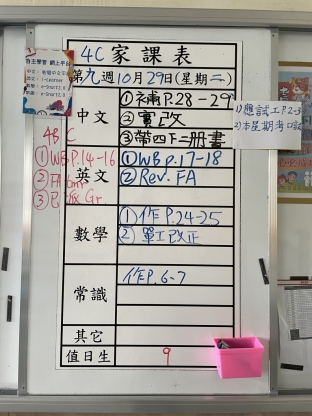 自主學習 網上平台
4C 家課表
第九週10月29日(星期二)
中文
①補P.28-29
②寫改
③帶四下二冊書
1)應試工P.2-3
2)本星期考口試
4B C
①WB P.14-16
英文
①WB p.17-18
②Rev. FA
數學
①作P.24-25
②單工改正
常識
作P.6-7
其它
值日生
9